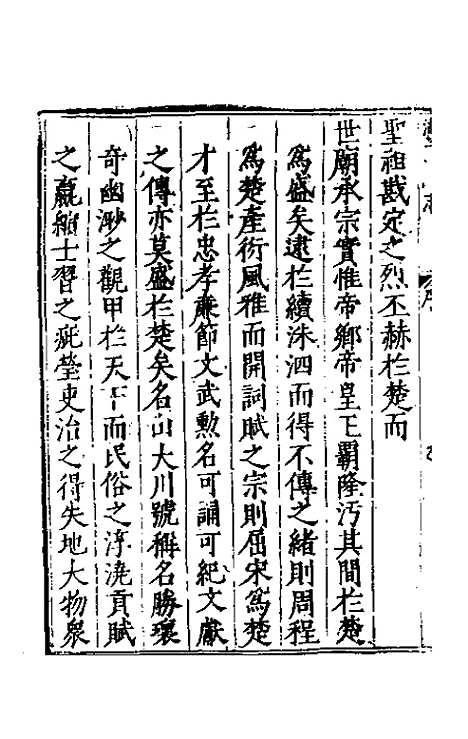 聖祖戡定之烈丕赫扵楚而
世廟承宗實惟帝鄉帝皇王霸隆汚其間扵楚
為盛矣逮扵續洙泗而得不傳之緒則周程
為楚產衍風雅而開詞賦之宗則屈宋為楚
才至扵忠孝亷節文武勲名可誦可紀文獻
之傳亦莫盛扵楚矣名山大川號稱名勝瓌
奇幽渺之觀甲扵天下而民俗之淳澆貢賦
之贏縮士習之疵瑩吏治之得失地大物衆